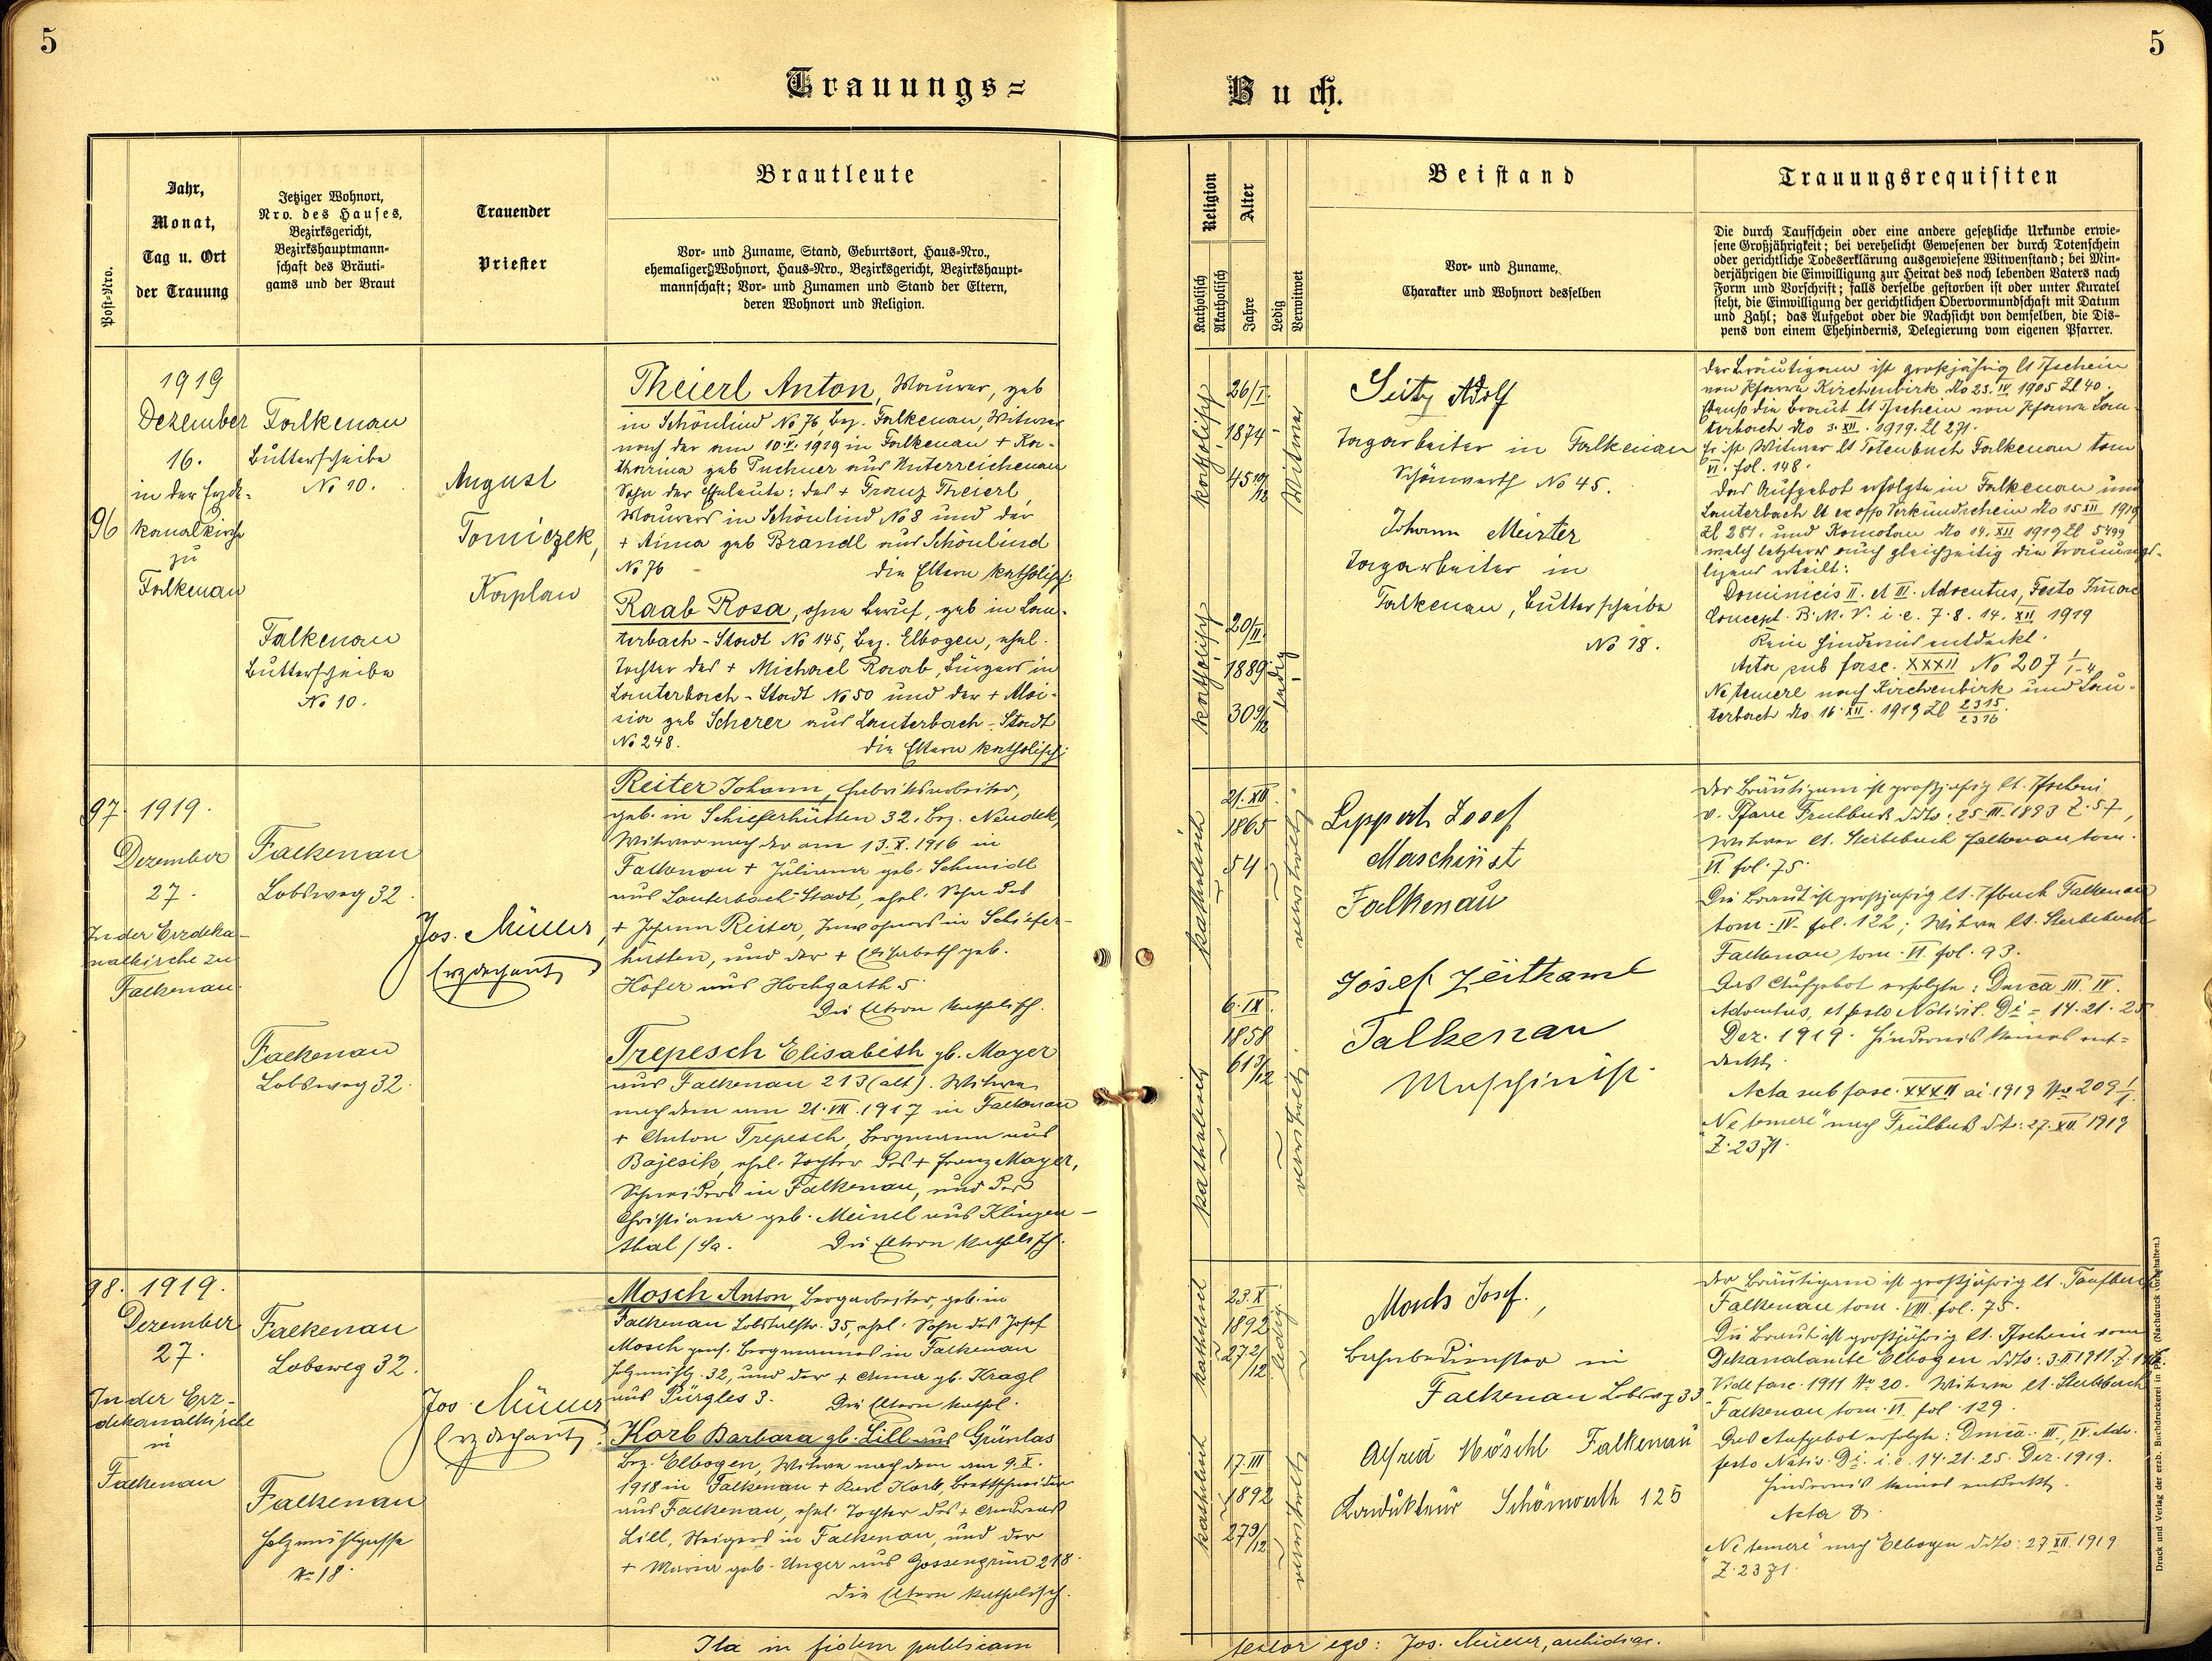 5
5
Trauungs=
Buch.
Post-Nro.
Jahr,
Monat,
Tag u. Ort
der Trauung
Jetziger Wohnort,
Nro. des Hauses,
Bezirksgericht,
Bezirkshauptmann-
schaft des Bräuti-
gams und der Braut
Trauender
Priester
Brautleute
Vor- und Zuname, Stand, Geburtsort, Haus-Nro.,
ehemaliger Wohnort, Haus-Nro., Bezirksgericht, Bezirkshaupt-
mannschaft; Vor- und Zunamen und Stand der Eltern,
deren Wohnort und Religion.
Religion
Katholisch
Akatholisch
Alter
Jahre
Ledig
Verwitwet
Beistand
Vor- und Zuname,
Charakter und Wohnort desselben
Trauungsrequisiten
Die durch Taufschein oder eine andere gesetzliche Urkunde erwie-
sene Großjährigkeit; bei verehelicht Gewesenen der durch Totenschein
oder gerichtliche Todeserklärung ausgewiesene Witwenstand; bei Min-
derjährigen die Einwilligung zur Heirat des noch lebenden Vaters nach
Form und Vorschrift; falls derselbe gestorben ist oder unter Kuratel
steht, die Einwilligung der gerichtlichen Obervormundschaft mit Datum
und Zahl; das Aufgebot oder die Nachsicht von demselben, die Dis-
pens von einem Ehehindernis, Delegierung vom eigenen Pfarrer.
96
1919
Dezember
16.
in der Erzde-
kanalkirche
zu
Falkenau
Falkenau
Butterscheibe
No 10.
Falkenau
Butterscheibe
No 10.
August
Tomiczek,
Kaplan
Theierl Anton, Maurer, geb
in Schönlind No 76, Bez. Falkenau, Witwer
nach der am 10.V.1919 in Falkenau + Ka-
tharina geb Puchner aus Unterreichenau
Sohn der Eheleute: des + Franz Theierl,
Maurers in Schönlind No 8 und der
+ Anna geb Brandl aus Schönlind
No 76 die Eltern katholisch
Raab Rosa, ohne Beruf, geb in Lau-
terbach-Stadt No 145, Bez. Elbogen, ehel.
Tochter des + Michael Raab, Bürgers in
Lauterbach-Stadt No 50 und der + Aloi-
sia geb Scherer aus Lauterbach-Stadt
No 248. die Eltern katholisch
katholisch
26/I.
1874
45 10/12
Witwer
katholisch
20/II.
1889
30 9/12
ledig
Seitz Adolf
Tagarbeiter in Falkenau
Schönwerth No 45.
Johann Meixter
Tagarbeiter in
Falkenau, Butterscheibe
No 18.
Der Bräutigam ist großjährig lt Tfschein
von Pfarre Kirchenbirk dto 23. IV 1905 Zl 40.
Ebenso die Braut lt Tfschein von Pfarre Lau-
terbach dto 3. XII. 1919. Zl 271.
Er ist Witwer lt Totenbuch Falkenau tom
VI. fol. 148.
Das Aufgebot erfolgte in Falkenau und
Lauterbach lt ex offo Verkündschein dto 15 XII 1919
Zl 281. und Komotau dto 14. XII 1919 Zl 5499
welch letzterer auch gleichzeitig die Trauungs-
lizenz erteilt:
Dominicis II. et III. Adventus, Festo Immac
Concept. B. M. V. i. e. 7. 8. 14. XII 1919
Kein Hindernis entdeckt.
Acta sub fasc. XXXII No 207 1/1-4
Ne temere nach Kirchenbirk und Lau-
terbach dto 16. XII. 1919 Zl 2315/2316.
97.
1919.
Dezember
27.
In der Erzdeka-
nalkirche zu
Falkenau.
Falkenau
Lobsweg 32.
Falkenau
Lobsweg 32.
Jos. Müller,
Erzdechant
Reiter Johann, Fabriksarbeiter,
geb. in Schieferhütten 32. Bez. Neudek,
Witwer nach der am 13. X. 1916 in
Falkenau + Juliana geb. Schmidl
aus Lauterbach-Stadt, ehel. Sohn des
+ Johann Reiter, Inwohners in Schiefer-
hütten, und der + Elisabeth geb.
Höfer aus Hochgarth 5.
Die Eltern katholisch.
Trepesch Elisabeth gb. Mayer
aus Falkenau 213 (alt). Witwe
nach dem am 21. VII. 1917 in Falkenau
+ Anton Trepesch, Bergmann aus
Bajesik, ehel. Tochter des + Franz Mayer,
Schneiders in Falkenau, und der
Christiana geb. Meinel aus Klingen-
thal / Sa. Die Eltern katholisch.
katholisch
21. XII.
1865
54
verwitwet
katholisch
6. IX.
1858
61 3/12
verwitwet
Lippert Josef
Maschinist
Falkenau
Josef Zeitkaml
Falkenau
Maschinist.
Der Bräutigam ist großjährig lt. Tfschein
v. Pfarre Frühbuß ddto: 25. III. 1893 Z. 57,
Witwer lt. Sterbebuch Falkenau tom.
VI. fol. 75.
Die Braut ist großjährig lt. Tfbuch Falkenau
tom. IV. fol. 122; Witwe lt. Sterbebuch
Falkenau tom. VI. fol. 93.
Das Aufgebot erfolgte: Dmca III. IV.
Adventus, et festo Nativit. Di = 14. 21. 25
Dez. 1919. Hindernis keines ent-
deckt.
Acta sub fasc. XXXII ai. 1919 No 209 1/1.
"Ne temere" nach Frühbuß dt: 27. XII. 1919
Z. 2371.
98.
1919.
Dezember
27.
In der Erz-
dekanalkirche
in
Falkenau
Falkenau
Lobsweg 32.
Falkenau
Holzmühlgasse
No 18.
Jos. Müller
Erzdechant
Mosch Anton, Bergarbeiter, geb. in
Falkenau Lobstalstr. 35, ehel. Sohn des Josef
Mosch pens. Bergmannes in Falkenau
Holzmühlg. 32, und der + Anna gb. Kragl
aus Pürgles 3. Die Eltern kathol.
Korb Barbara gb. Lill aus Grünlas
Bez. Elbogen, Witwe nach dem am 9. X.
1918 in Falkenau + Karl Korb, Brettschneider
aus Falkenau, ehel. Tochter des + Andreas
Lill, Steigers in Falkenau, und der
+ Maria geb. Unger aus Gossengrün 218.
Die Eltern katholisch.
katholisch
23. X.
1892
27 2/12
ledig
katholisch
17. III
1892
27 9/12
verwitwet
Mosch Josef.,
Bahnbediensteter in
Falkenau Lobsweg 33
Alfred Möschl Falkenau
Kondukteur Schönwerth 125
Der Bräutigam ist großjährig lt. Taufbuch
Falkenau tom. VIII. fol. 75.
Die Braut ist großjährig lt. Tfschein vom
Dekanalamte Elbogen ddto: 3. II. 1911. Z.
Vide fasc. 1911 No 20. Witwe lt. Sterbebuch
Falkenau tom. VI. fol. 129.
Das Aufgebot erfolgte: Dmca. III., IV. Adv.
festo Nativ. Di. i. e. 14. 21. 25. Dez. 1919.
Hindernis keines entdeckt.
"Ne temere" nach Elbogen ddto: 27. XII. 1919
Z. 2371.
Ita in fidem publicam
testor ego: Jos. Müller, archidiac.
Druck und Verlag der erzb. Buchdruckerei in Prag. (Nachdruck vorbehalten.)